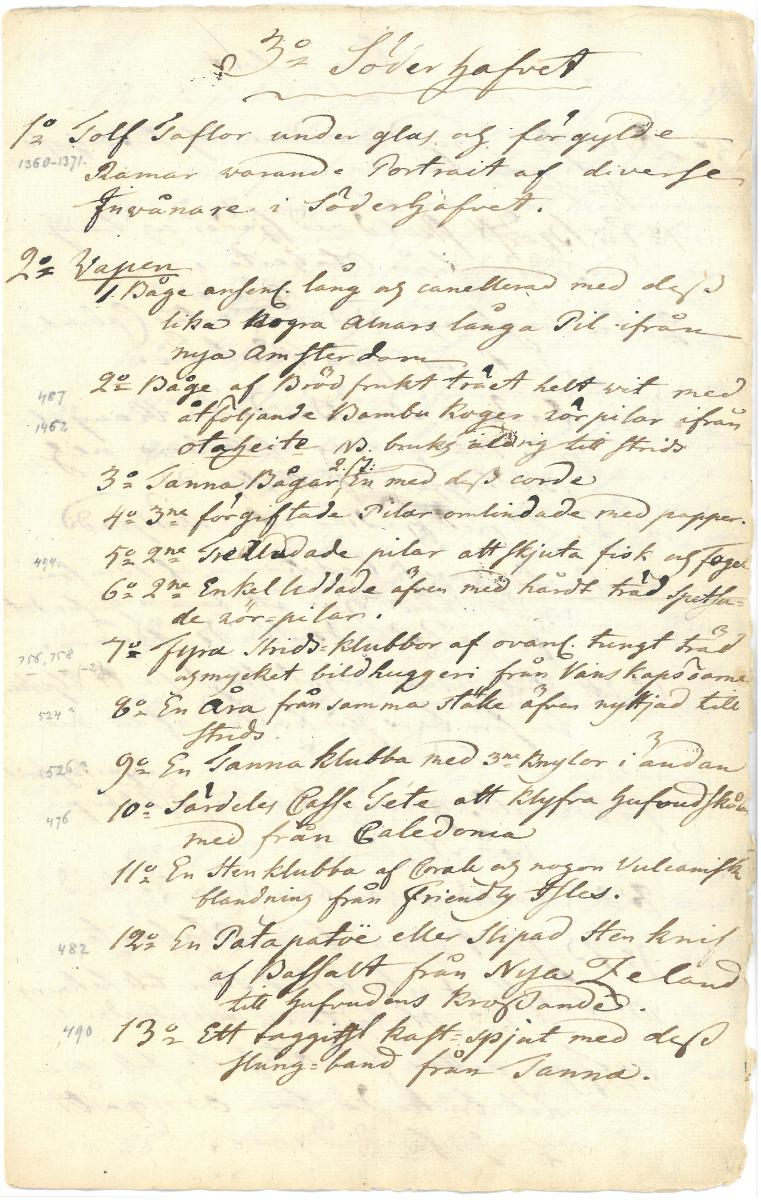 3o Söderhafvet
1o Tolf Taflor under glas och förgylde
1360-1371.
Ramar varande Portrait af diverse
Invånare i Söderhafvet.
2o Vapen
1 Båge ansenl. lång och canellerad med dess
lika några alnars långa Pil ifrån
nya Amsterdam
2o Båge af Bröd frukt trädet helt vit med
487
åtföljande Bambu Koger rörpilar ifrån
1462
otaheite NB. bruks aldrig till strids
3o Tanna Bågar En med dess corde
4o 3ne förgiftade Pilar omlindade med papper.
5o 2ne Treuddade pilar att skjuta fisk och fogel
494.
6o 2ne Enkel uddade äfven med hårdt träd spetsa-
de rör-pilar.
7o Fyra Strids-klubbor af ovanl. tungt träd
756, 758
och mycket bildhuggeri från Vänskapsöarne
8o En Åra från samma ställe äfven nyttjad till
524?
strids.
9o En Tanna klubba med 3ne Knylor i ändan
526?
10o Särdeles Casse Tete att klyfva hufvudskålar
476
med från Caledonia
11o En Stenklubba af Corall och någon Vulcanisk
blandning från Friendly Isles.
12o En Patapatoë eller slipad Sten knif
482
af Bassalt från Nya Zeland
till hufvudens krossande.
13o Ett taggigt kast-spjut med dess
490
slung-band från Tanna.